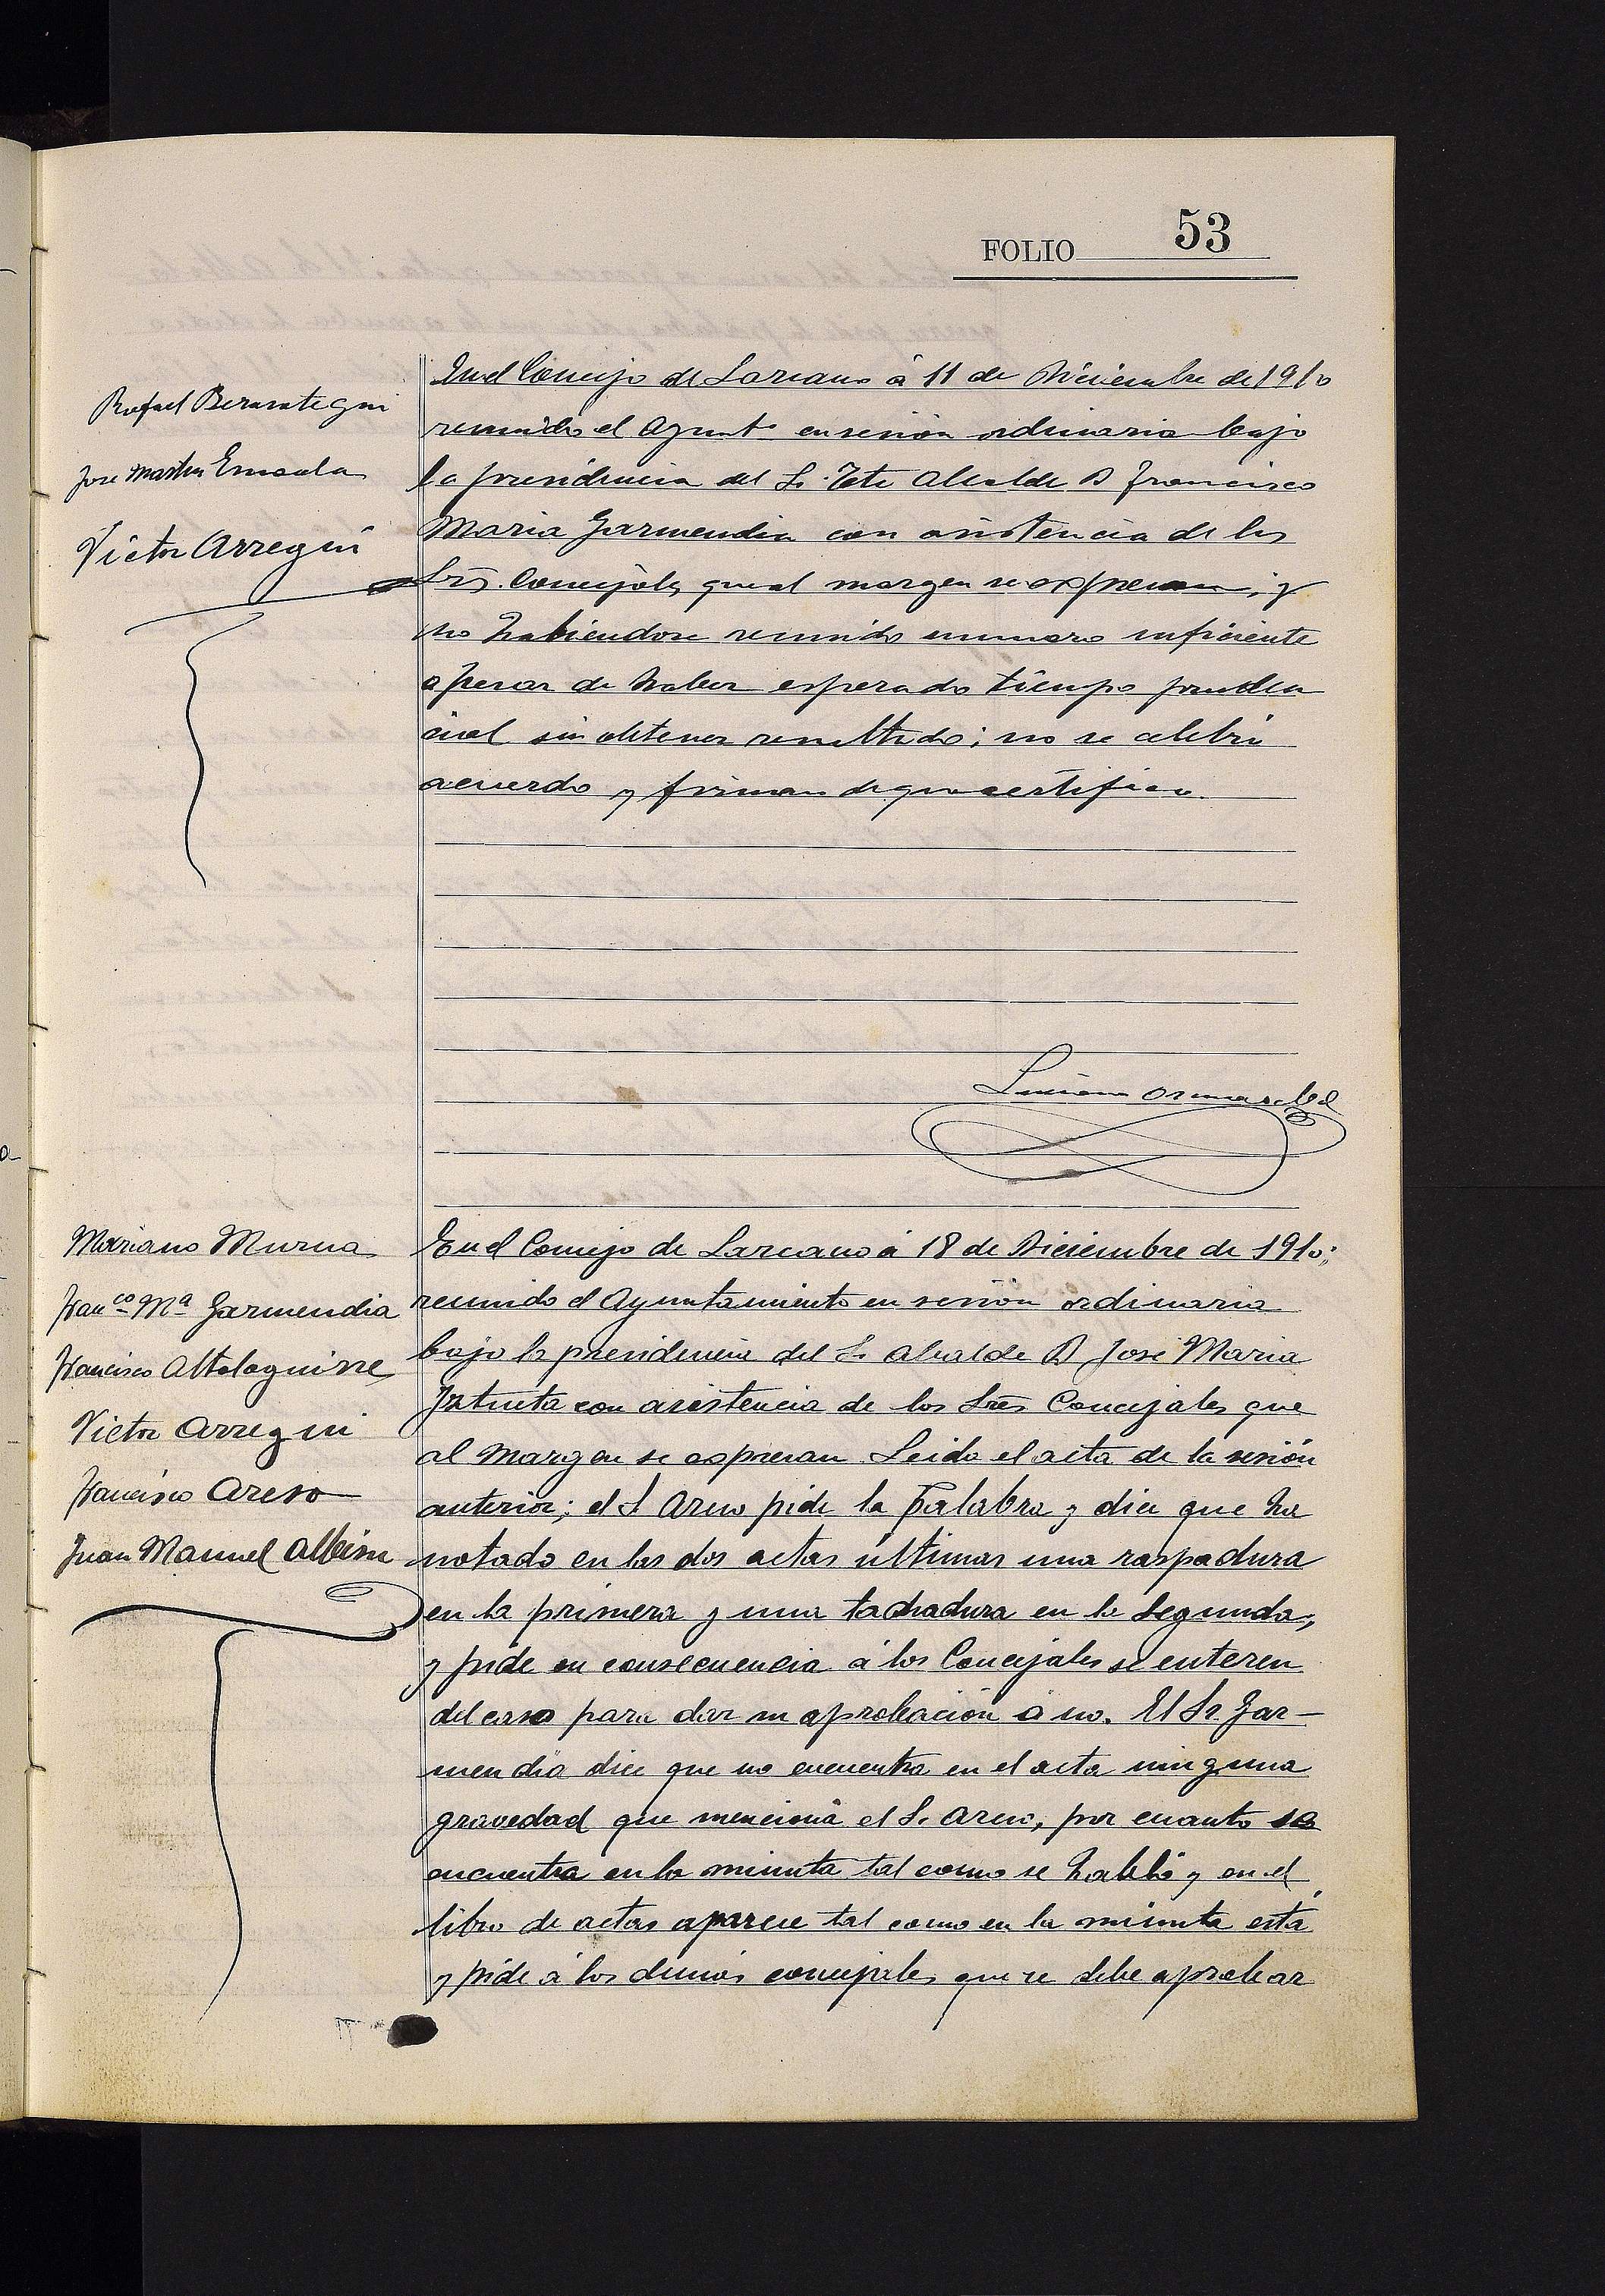 FOLIO 53
Rafael Berasategui
Jose Martin Ensausla
Victor Arregui
En el Concejo de Lazcano á 11 de Diciembre de 1910
reunido el Ayunt.º en sesión ordinaria bajo
la presidencia del Sr. Tete Alcalde D Francisco
Maria Garmendia con asistencia de los
Srs. Concejales que al margen se expresan, y
no habiendose reunido numero suficiente
a pesar de haber esperado tiempo pruden
cial sin obtener resultado; no se celebró
acuerdo y firman de que certifico.
Luciano Ormazabal
Mariano Murua
Franco Mª Garmendia
Francisco Altolaguirre
Victor Arregui
Francisco Areso
Juan Manuel Albisu
En el Concejo de Lazcano á 18 de Diciembre de 1910;
reunido el Ayuntamiento en sesión ordinaria
bajo la presidencia del Sr Alcalde D José Maria
Iztueta con asistencia de los Sres Concejales que
al margen se expresan. Leida el acta de la sesión
anterior; el S Areso pide la palabra y dice que ha
notado en las dos actas últimas una raspadura
en la primera y una tachadura en la segunda,
y pide en consecuencia á los Concejales se enteren
del caso para dar su aprobación ó no. El Sr. Gar-
mendia dice que no encuentra en el acta ninguna
gravedad que menciona el Sr Areso, por cuanto se
encuentra en la minuta tal como se habló y en el
libro de actas aparece tal como en la minuta está
y pide á los demás concejales que se debe aprobar